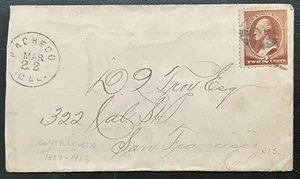 PACHECO
MAR
22
CAL.
TWO CENTS
D. Q. Troy Esq
322 Cal St
San Francisco
CONTRA COSTA
1859-1913